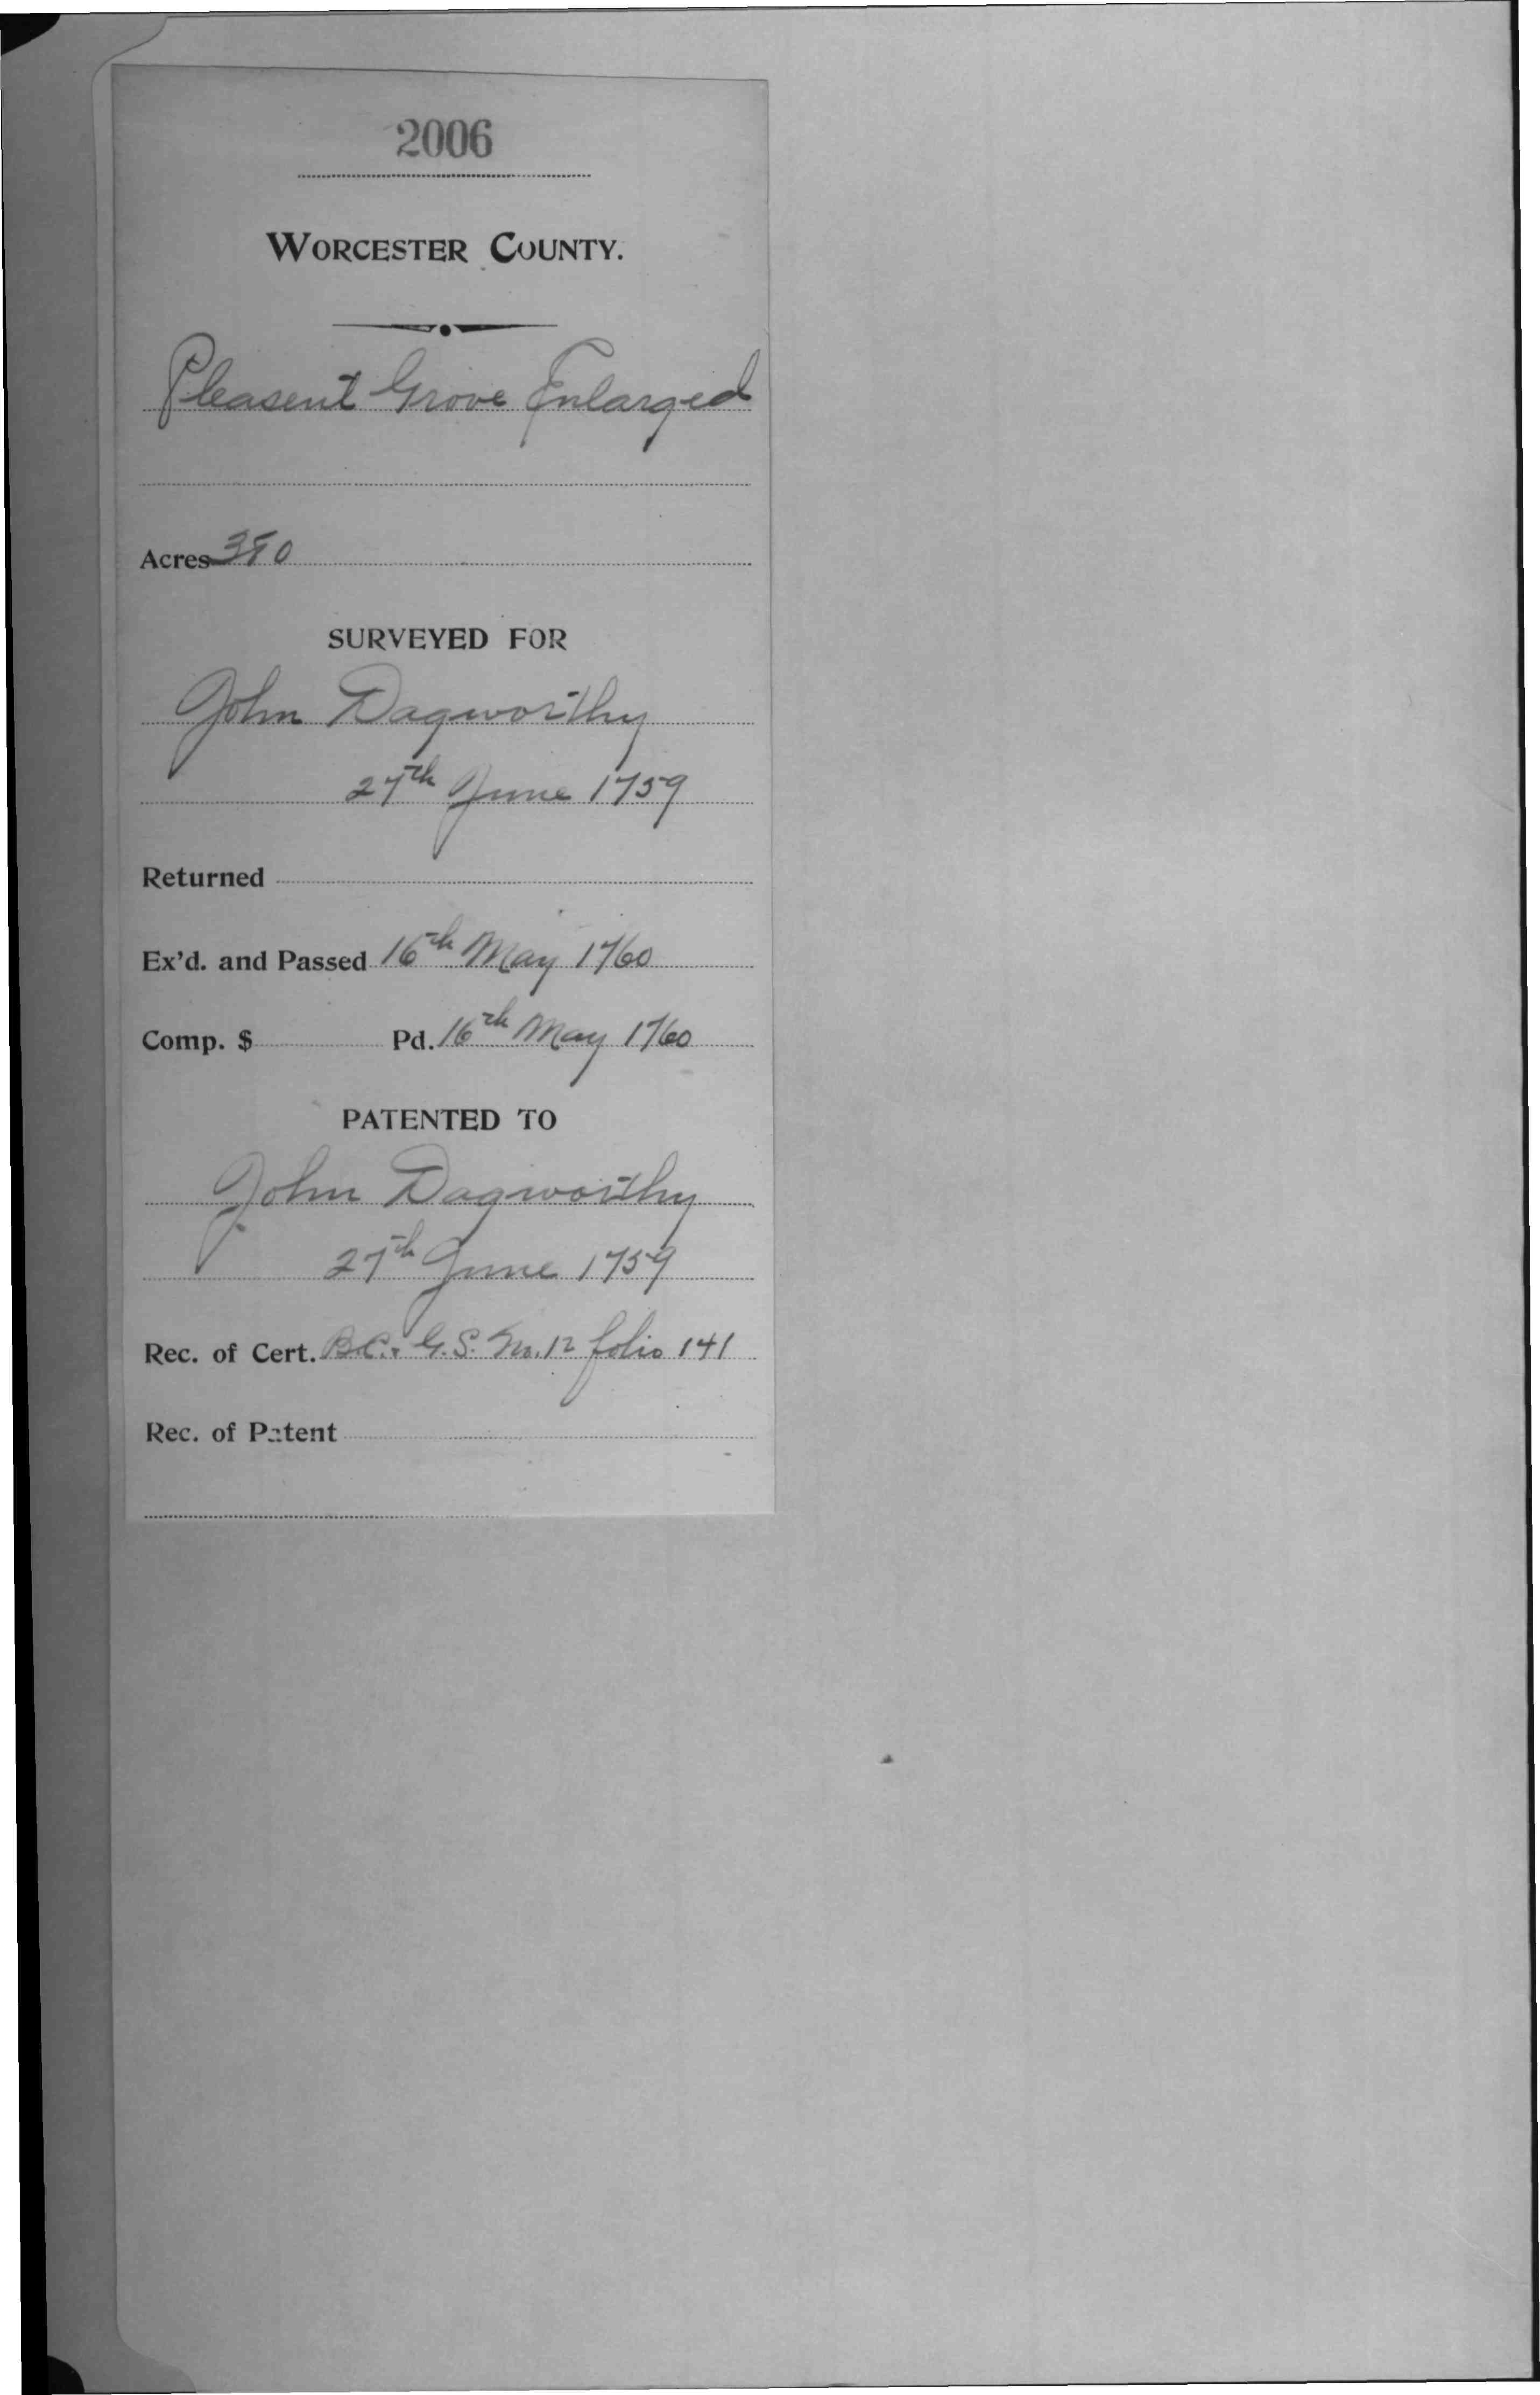 2006
WORCESTER COUNTY.
Pleasent Grove Enlarged
Acres
SURVEYED FOR
John Dagworthy
27th June 1759
Returned
Ex'd. and Passed 16th May 1760
Comp. $ Pd. 16th May 1760
PATENTED TO
John Dagworthy
27th June 1759
Rec. of Cert. B.C. & G.S. No. 12 folio 141
Rec. of Patent